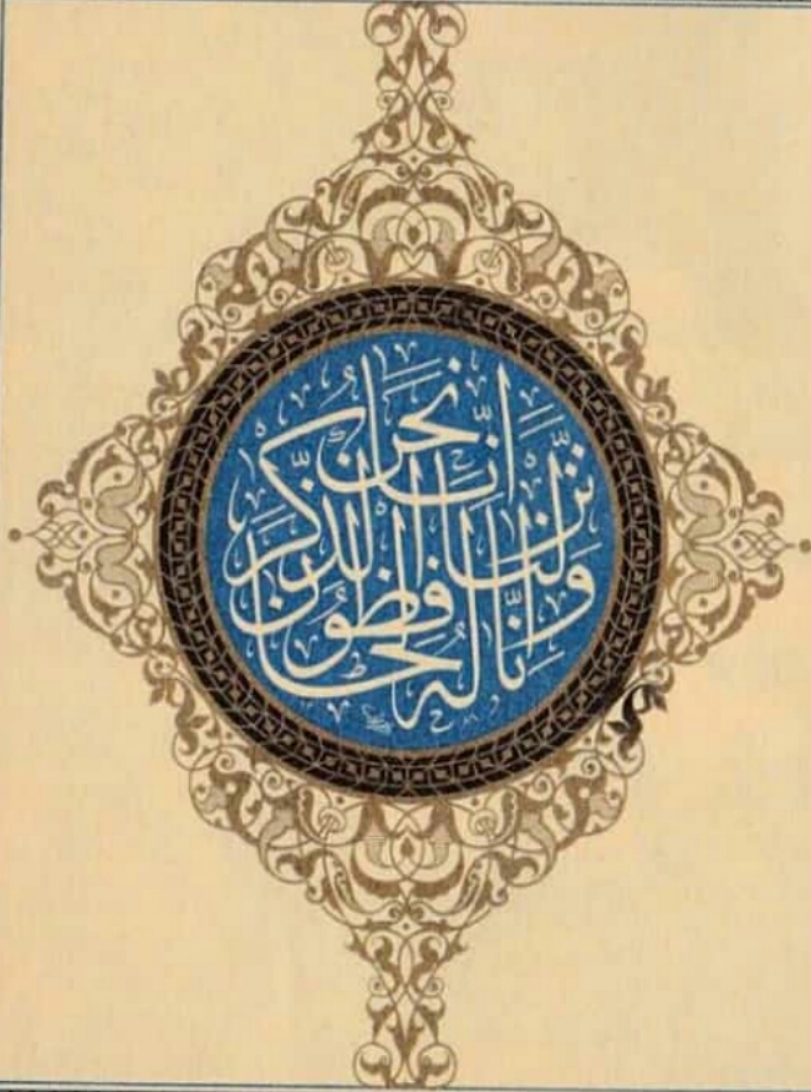 انا نحن نزلنا الذكر وانا له لحافظون